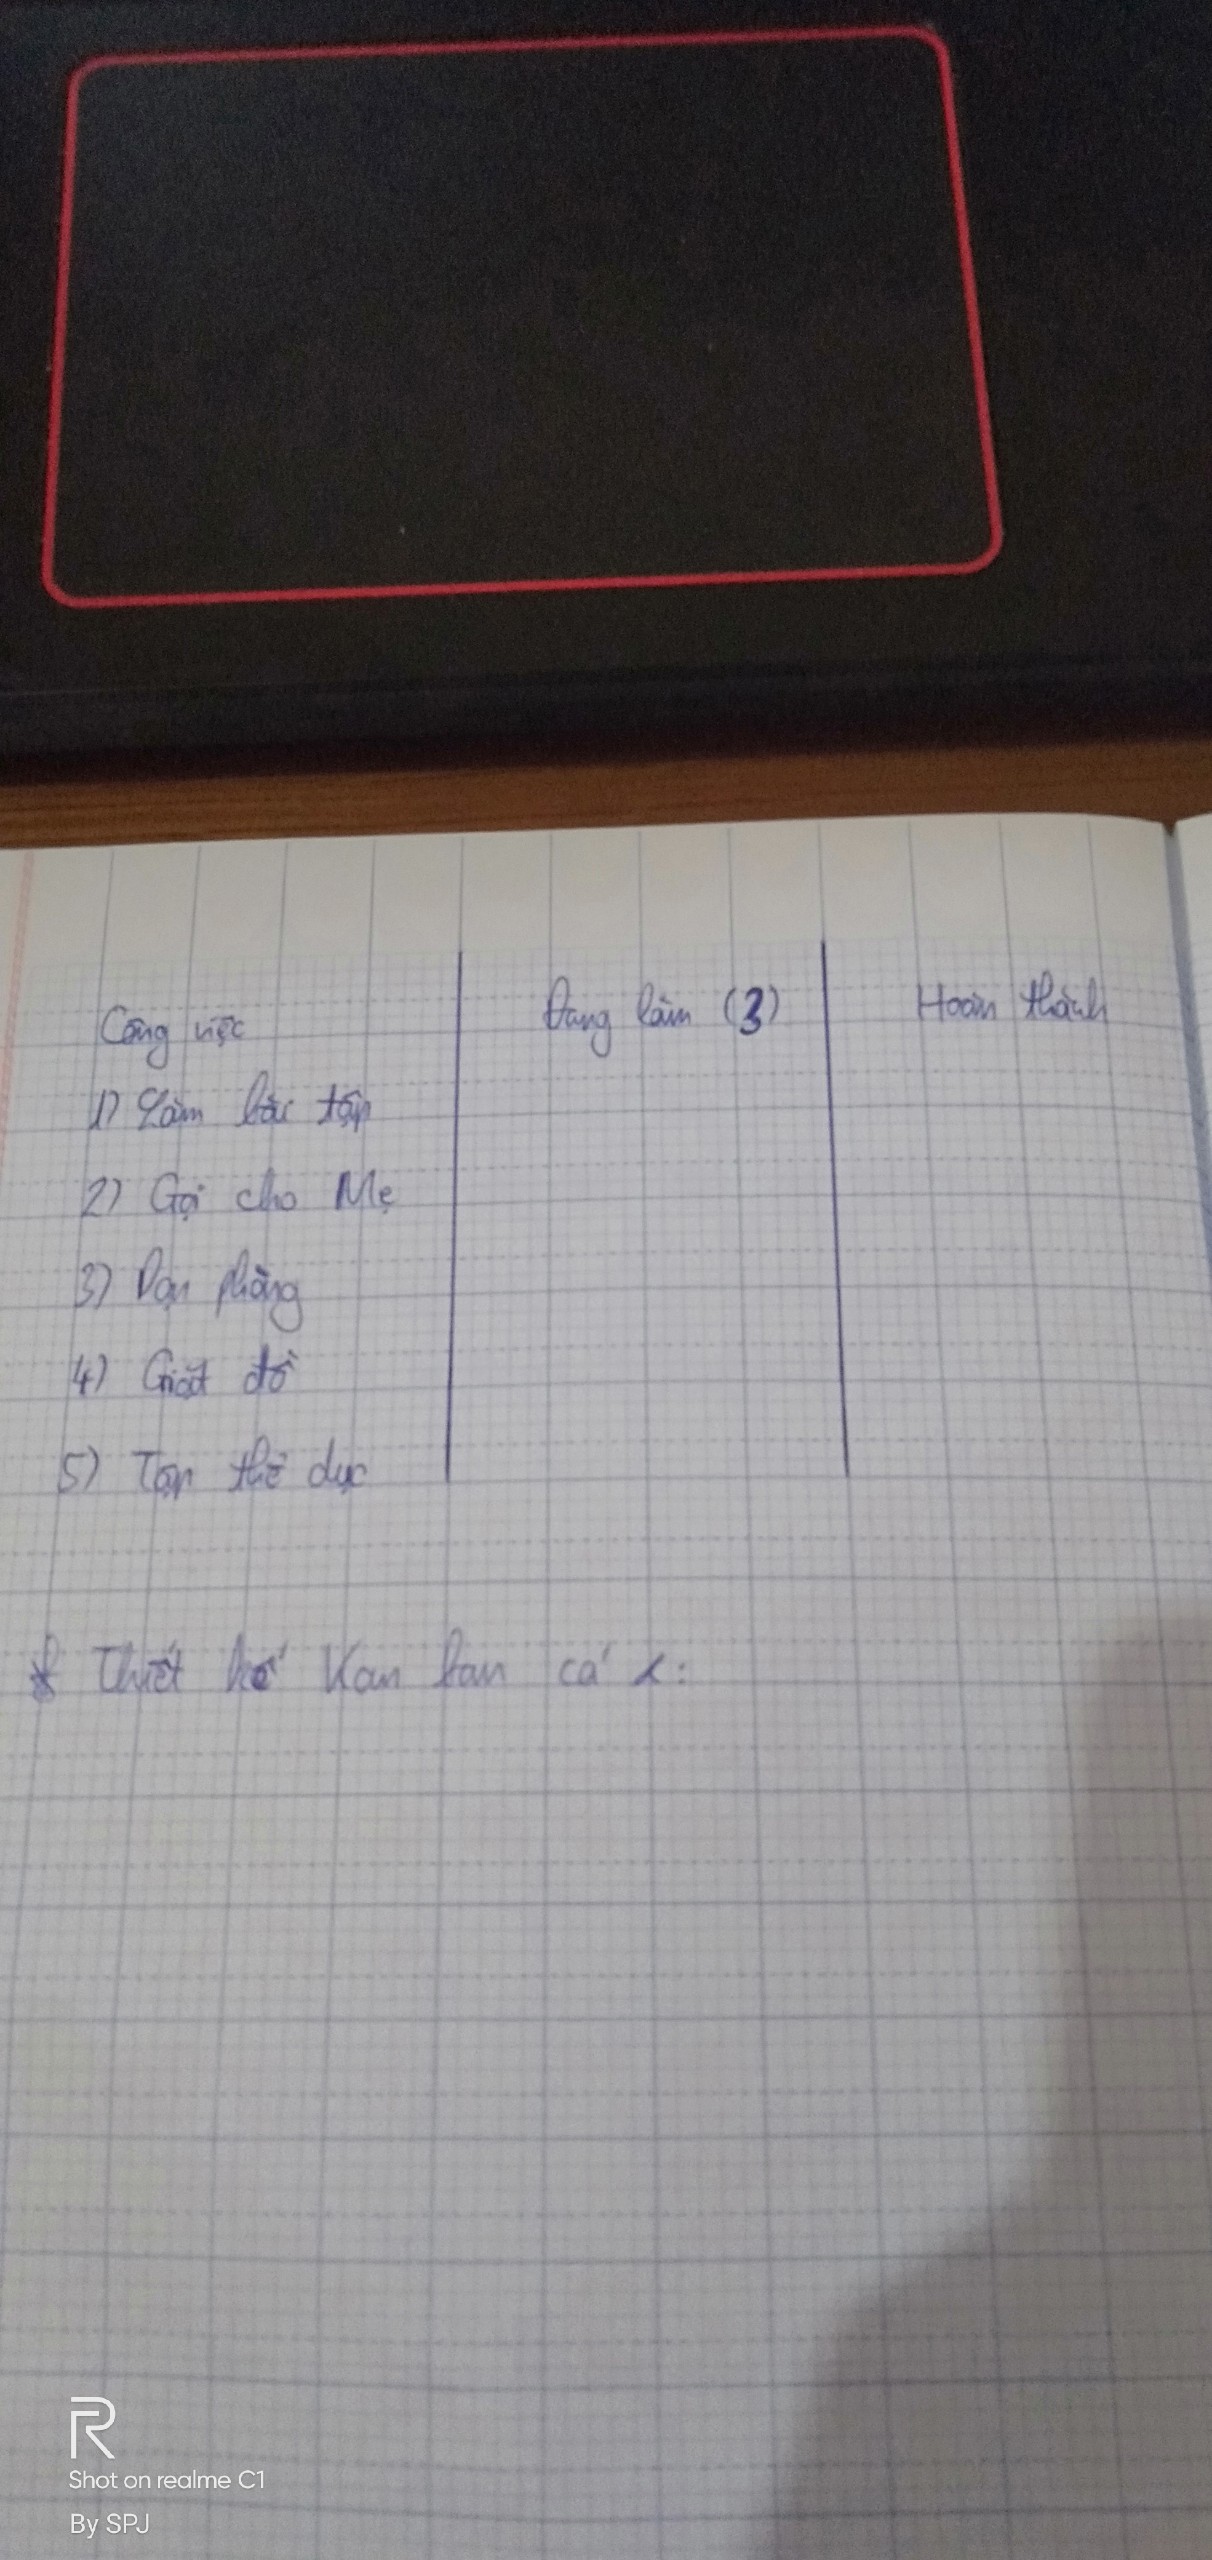 Công việc
Đang làm (3)
Hoàn thành
1) Làm bài tập
2) Gọi cho Mẹ
3) Dọn phòng
4) Giặt đồ
5) Tập thể dục
* Thiết kế Kan ban cá :
Shot on realme C1
By SPJ